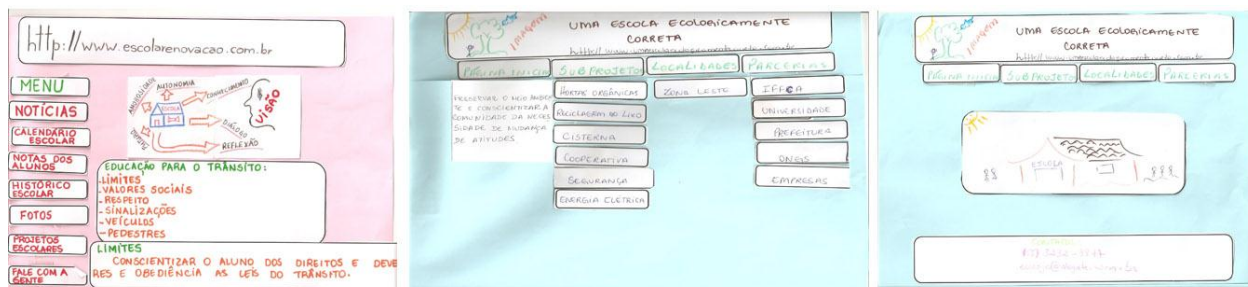 http://www.escolarenovacao.com.br
MENU
NOTÍCIAS
CALENDÁRIO
ESCOLAR
NOTAS DOS
ALUNOS
HISTÓRICO
ESCOLAR
FOTOS
PROJETOS
ESCOLARES
FALE COM A
GENTE
AUTONOMIA
CONHECIMENTO
ESCOLA
VISÃO
DIÁLOGO
REFLEXÃO
EDUCAÇÃO PARA O TRÂNSITO:
-LIMITES
-VALORES SOCIAIS
-RESPEITO
-SINALIZAÇÕES
-VEÍCULOS
-PEDESTRES
LIMITES
CONSCIENTIZAR O ALUNO DOS DIREITOS E DEVE
RES E OBEDIÊNCIA AS LEIS DO TRÂNSITO.
Imagem
UMA ESCOLA ECOLOGICAMENTE
CORRETA
PÁGINA INICIA SUBPROJETO LOCALIDADES PARCERIAS
PRESERVAR O MEIO AMBIEN
TE E CONSCIENTIZAR A
COMUNIDADE DA NECES
SIDADE DE MUDANÇA
DE ATITUDES
HORTAS ORGÂNICAS
RECICLAGEM DO LIXO
CISTERNA
COOPERATIVA
SEGURANÇA
ENERGIA ELETRICA
ZONA LESTE
UNIVERSIDADE
PREFEITURA
ONGIS
EMPRESAS
Imagem
UMA ESCOLA ECOLOGICAMENTE
CORRETA
PÁGINA INICIA SUBPROJETO LOCALIDADES PARCERIAS
ESCOLA